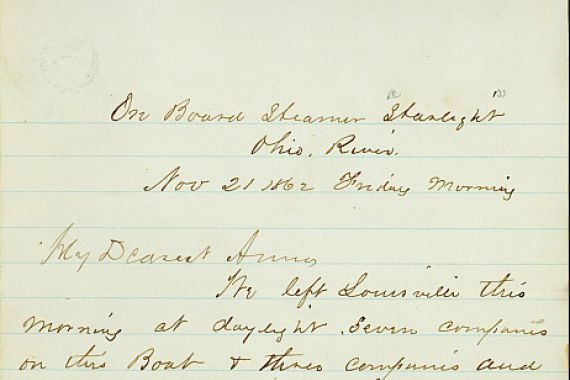 On Board Steamer "Starlight"
Ohio. River.
Nov 21 1862 Friday Morning
My Dearest Anna
We left Louisville this
morning at daylight. Seven companies
on this Boat & three companies and